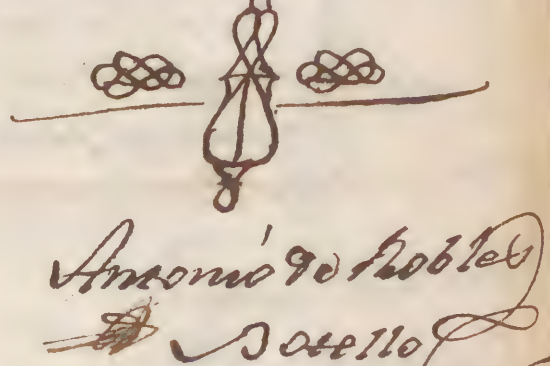 Antonió de Robles
Botello